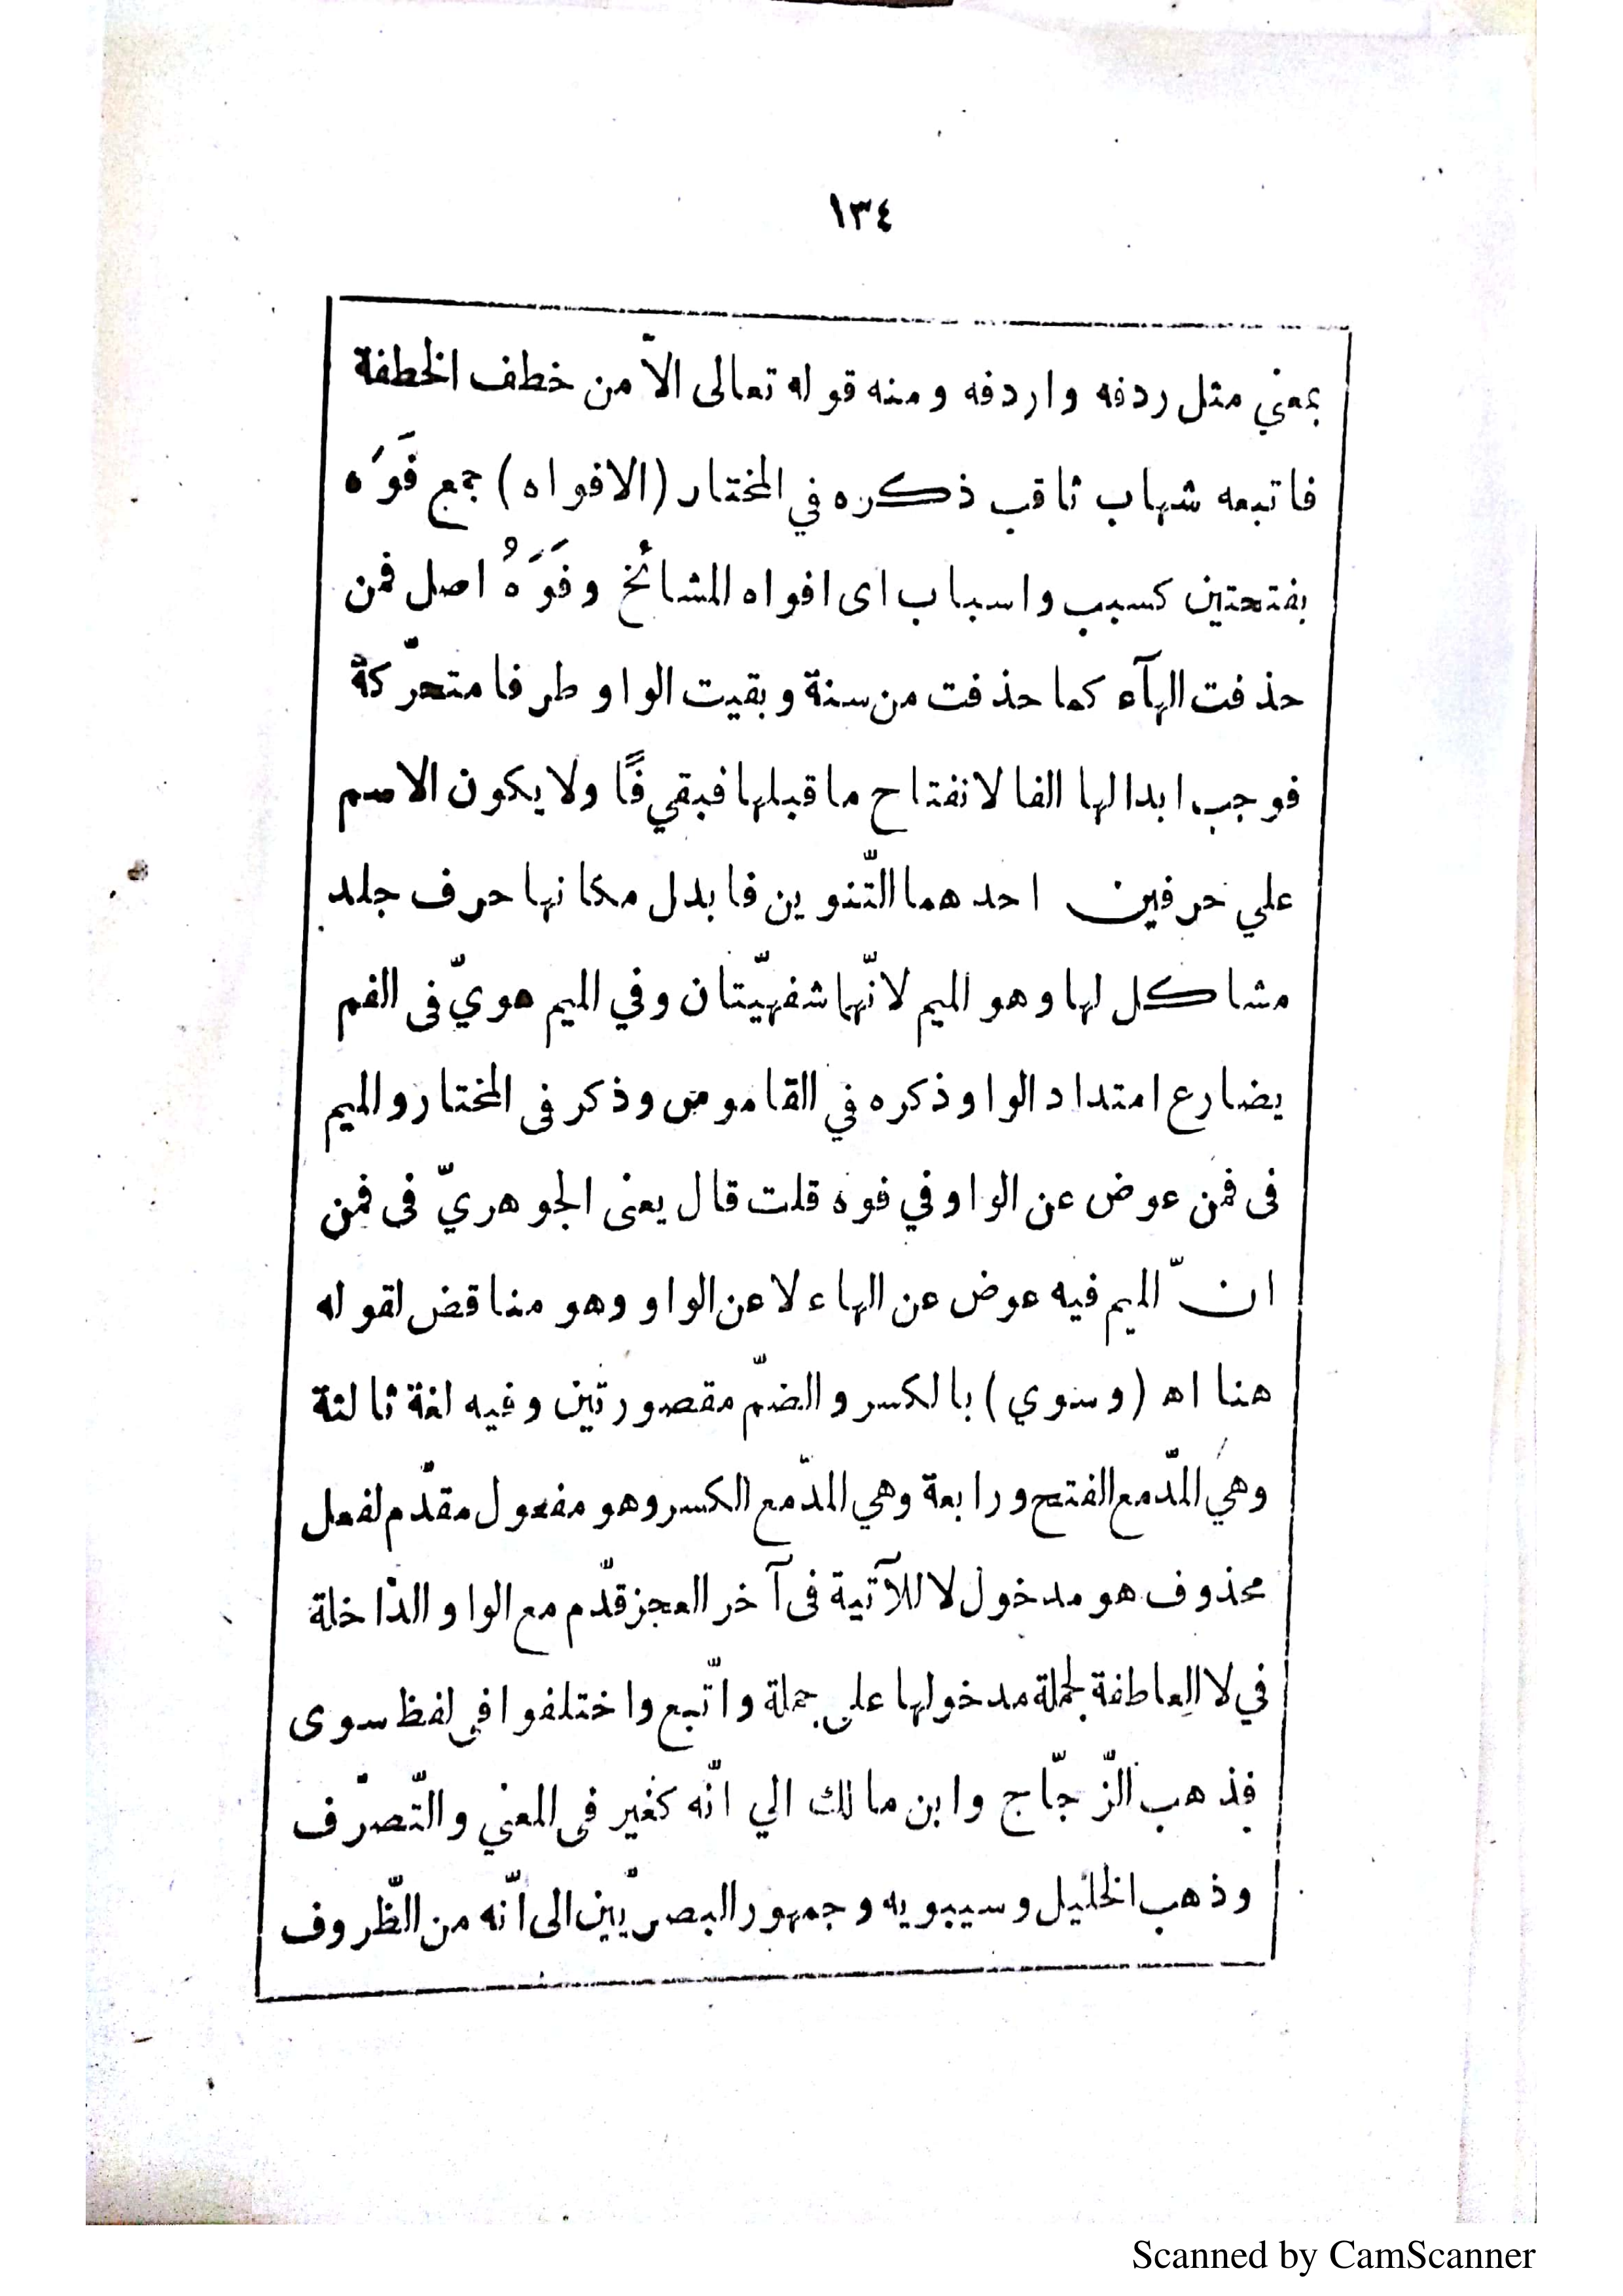 ١٣٤
بمعني مثل ردفه واردفه ومنه قوله تعالى الاّ من خطف الخطفة
فاتبعه شهاب ثاقب ذكره في المختار (الافواه) جمع فَوَه
بفتحتين كسبب واسباب اى افواه المشائخ وفَوَهُ اصل فمن
حذفت الهآء كما حذفت من سنة وبقيت الواو طرفا متحرّكة
فوجب ابدالها الفا لانفتاح ما قبلها فبقي فًا ولا يكون الاسم
علي حرفين احدهما التّنوين فابدل مكانها حرف جلد
مشاكل لها وهو الميم لانّهما شفهيّتان وفي الميم هويّ فى الفم
يضارع امتداد الواو ذكره في القاموس وذكر فى المختار والميم
فى فمن عوض عن الواو في فوه قلت قال يعنى الجوهريّ فى فمن
انّ الميم فيه عوض عن الهاء لا عن الواو وهو مناقض لقوله
هنا اه (وسوي) بالكسر والضمّ مقصورتين وفيه لغة ثالثة
وهي المدّ مع الفتح ورابعة وهي المدّ مع الكسر وهو مفعول مقدّم لفعل
محذوف هو مدخول لا للآتية فى آخر العجز قدّم مع الواو الدّاخلة
في لا العاطفة لجملة مدخولها على جملة واتّبع واختلفوا في لفظ سوى
فذهب الزّجّاج وابن مالك الي انّه كغير فى المعني والتّصرّف
وذهب الخليل وسيبويه وجمهور البصريّين الى انّه من الظّروف
Scanned by CamScanner